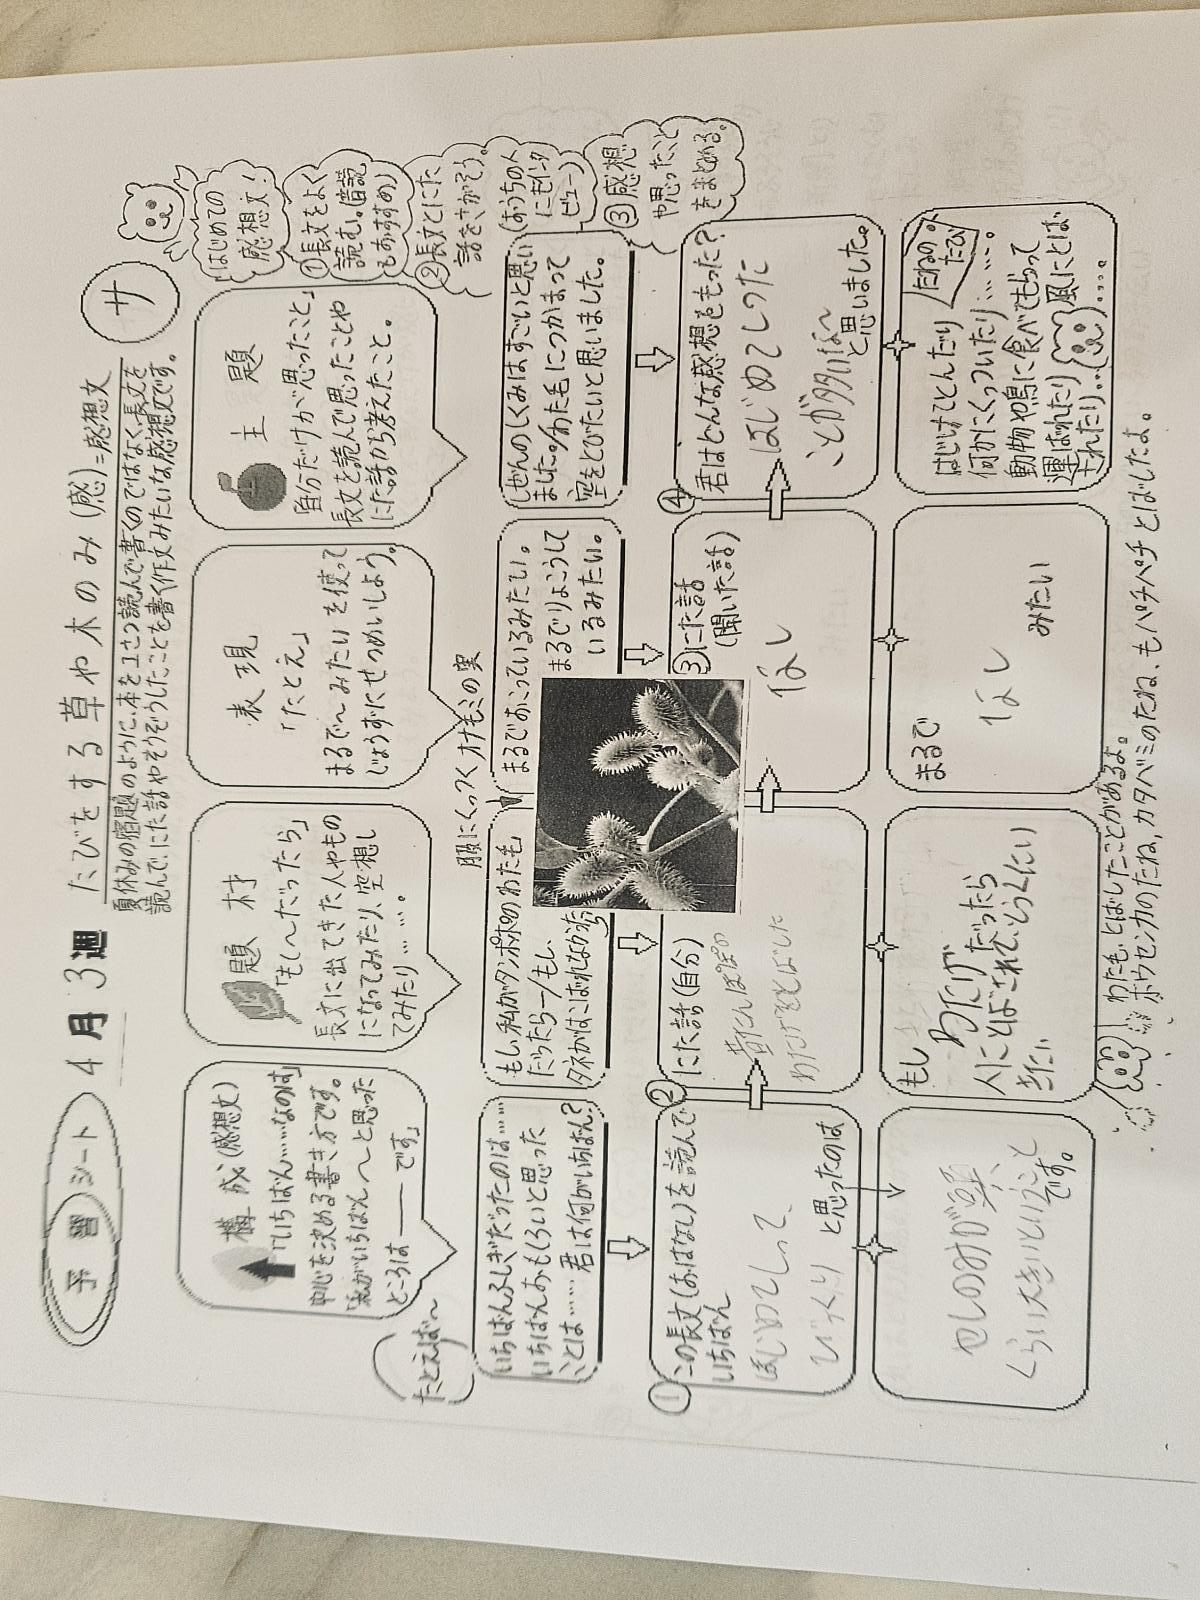 予習シート 4月3週 たびをする草や木のみ(感)=感想文 サ
夏休みの宿題のように、本を1さつ読んで書くのではなく、長文を
読んで、にた話やそうぞうしたことを書く作文みたいな感想文です。
はじめての
感想文!
①長文をよく
読む。(音読
もおすすめ)
②長文とにた
話をさがそう。
(おうちの人
にもインタ
ビュー)
③感想
や思ったこと
をまとめる。
構成(感想文)
「いちばん……なのは」
中心を決める書き方です。
「私がいちばん~と思った
ところは――です」
題材
「もし~だったら」
長文に出てきた人やもの
になってみたり、空想し
てみたり……。
表現
「たとえ」
まるで~みたい を使って
じょうずにせつめいしよう。
主題
「自分だけが思ったこと」
長文を読んで思ったことや
にた話から考えたこと。
たとえば~
いちばんふしぎだったのは…
いちばんおもしろいと思った
ことは…… 君は何がいちばん?
もし、私がタンポポのわた毛
だったら―/もし、
タネがはこばれなかったら
服にくっつくオナモミの実
まるでおこっているみたい。
まるでりょこうして
いるみたい。
しぜんのしくみはすごいと思い
ました。/わた毛につかまって
空をとびたいと思いました。
①この長文(おはなし)を読んで
いちばん
はじめてしって、
びっくり
と思ったのは
②にた話(自分)
昔たんぽぽの
わたげをとばした
③にた話
(聞いた話)
なし
④君はどんな感想をもった?
はじめてしった
ことが多いな~
と思いました。
くらい大きいということ
です。
もし
わたげだったら
人にとばされて、らくにい
きたい
まるで
なし
みたい
たねの
たび
はじけてとんだり
何かにくっついたり……。
動物や鳥に食べてもらって
運ばれたり
風にとば
されたり……。
わた毛、とばしたことがあるよ。
ホウセンカのたね、カタバミのたね、もパチパチとばしたよ。